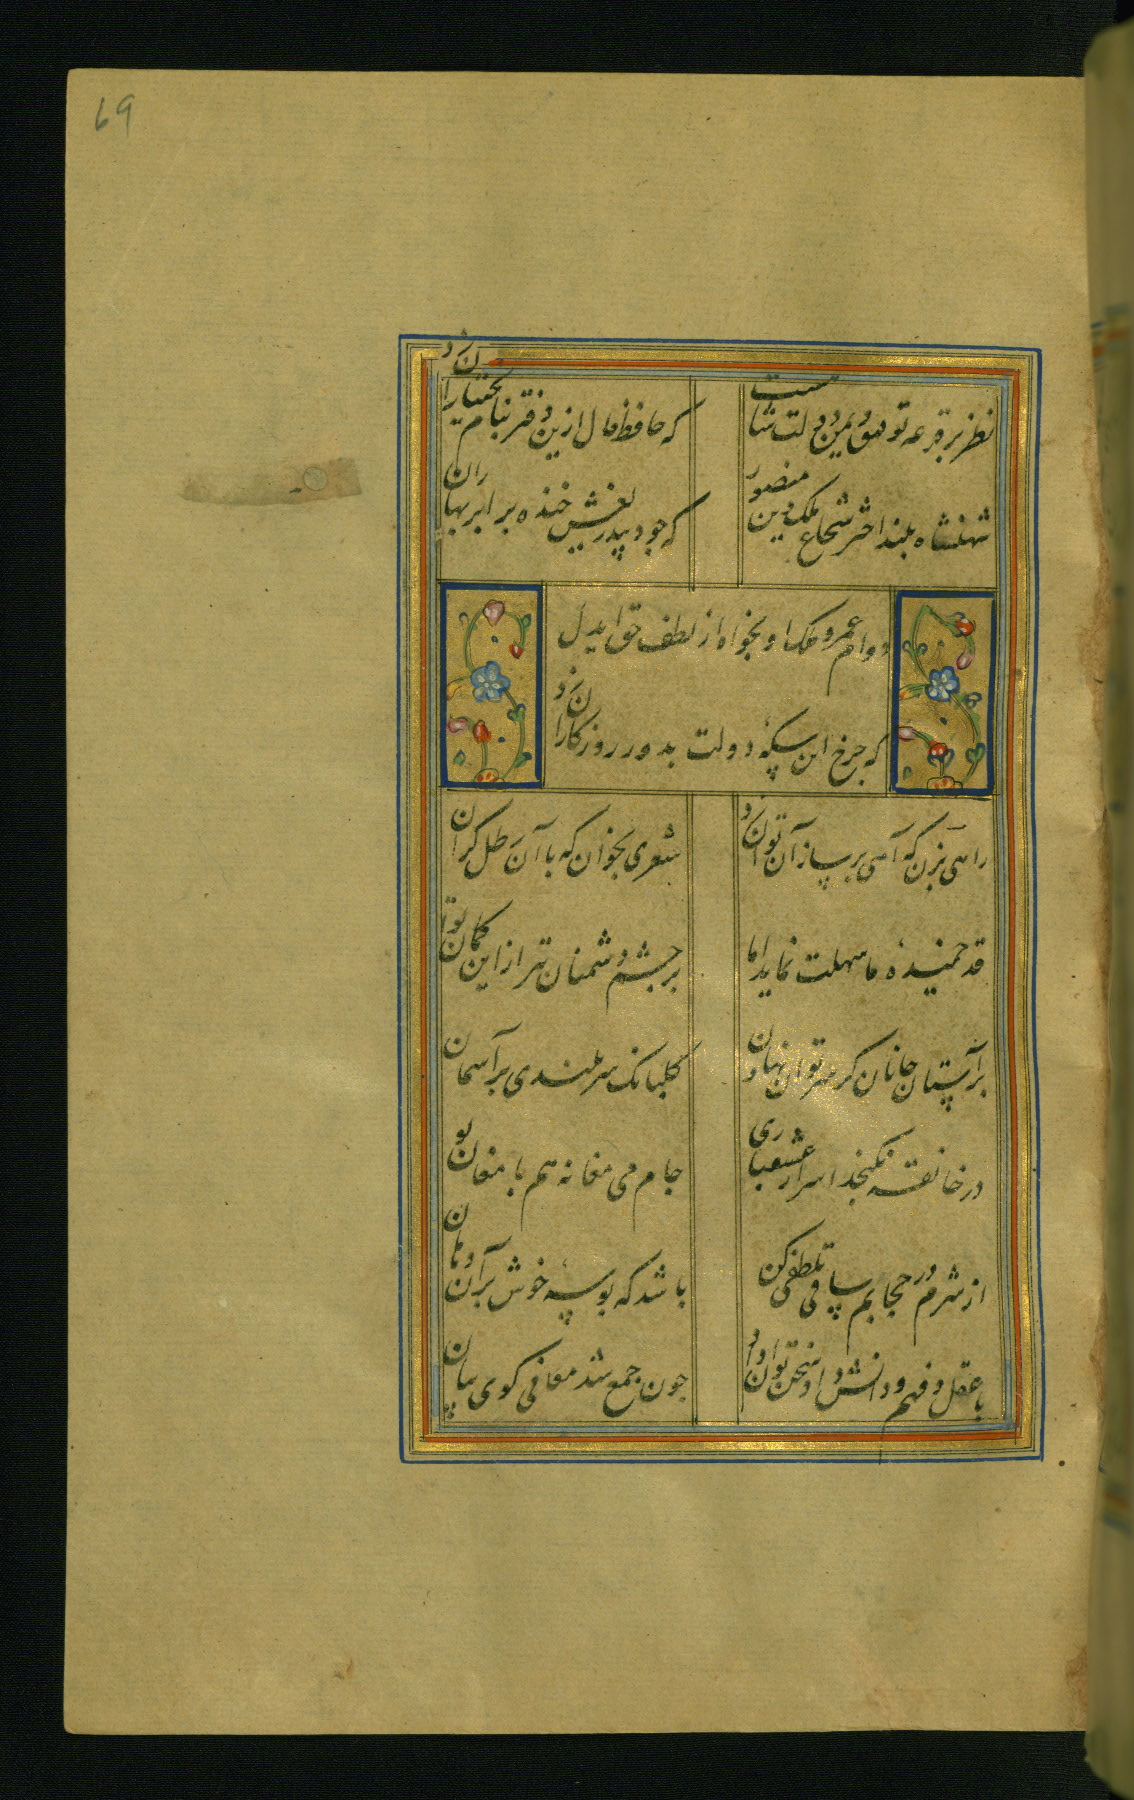 69
نظر بر قرعه توفیق و یمن دولت شاست
که حافظ فال ازین دفتر بنام بختیاران زد
شهنشاه بلند اختر شجاع ملک و دین منصور
که جود بیدریغش خنده بر ابر بهاران زد
دوام عمر و ملک او بخواه از لطف حق ایدل
که چرخ این سکهٔ دولت بدور روزکاران زد
راهی بزن که آهی بر ساز آن توان زد
شعری بخوان که با آن رطل کران
قد خمیدهٔ ما سهلت نماید اما
بر چشم دشمنان تیر از این کمان توا
بر آستان جانان کر سر توان نهادن
کلبانک سر بلندی بر آسمان
در خانقه نکنجد اسرار عشقباری
جام می مغانه هم با مغان تو
از شرم در حجابم ساقی تلطفی کن
باشد که بوسهٔ خوش بر آن دهان
با عقل و فهم و دانش داد سخن توان داد
چون جمع شد معانی کوی بیان